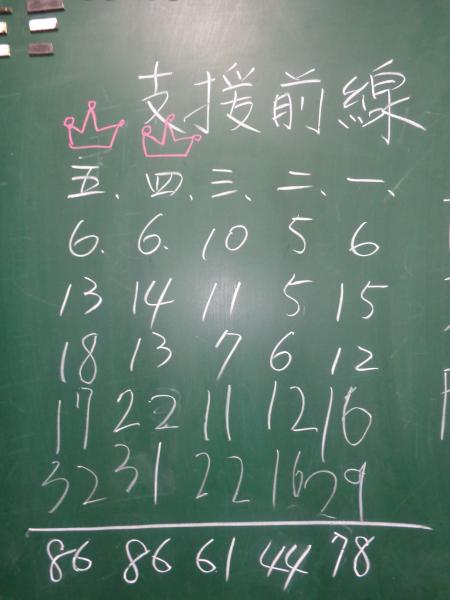 支援前線
五、四、三、二、一、
6. 6. 10 5 6
13 14 11 5 15
18 13 7 6 12
17 22 11 12 16
32 31 22 16 29
86 86 61 44 78